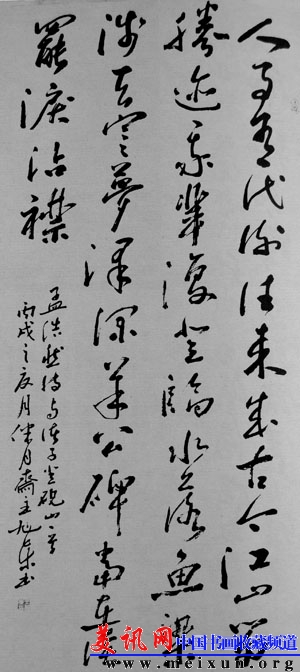 人事有代谢往来成古今江山留
勝迹我輩復登臨水落魚梁
浅天寒夢澤深羊公碑尚在读
罷淚沾襟
孟浩然诗与诸子登硯山一首
丙戌之夏月伴月齋主旭东书
美讯网 中国书画收藏频道
www.meixun.org